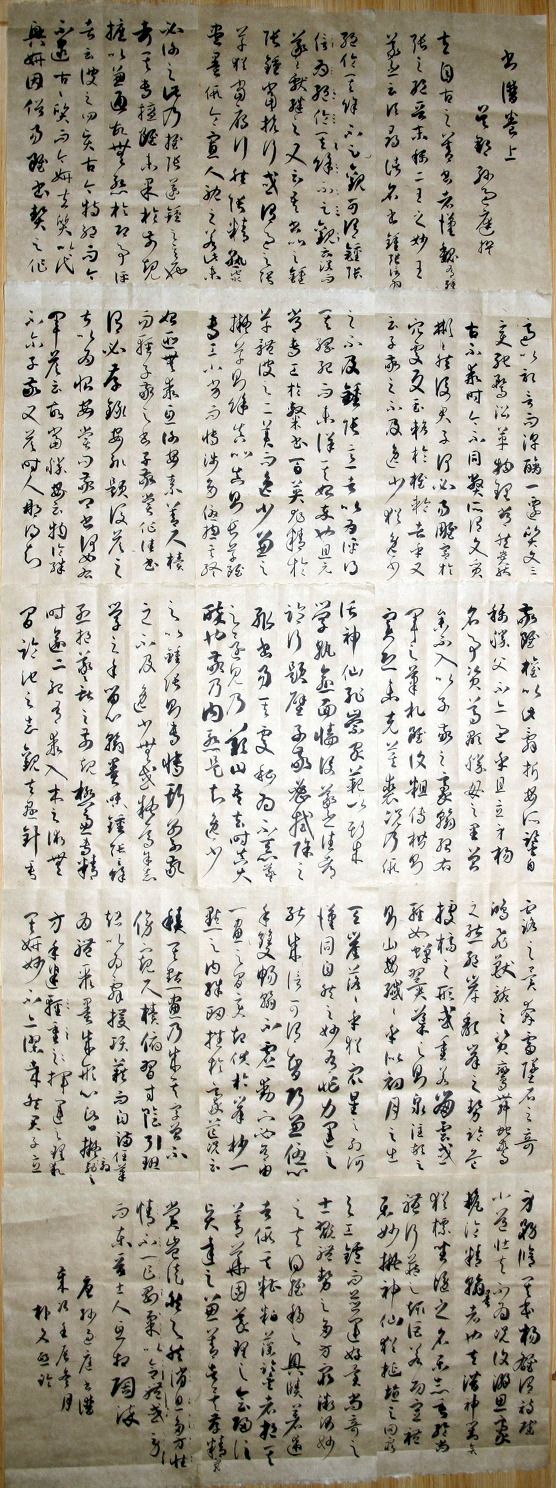 書譜卷上
吳郡孫過庭撰
夫自古之善書者漢魏有鍾
張之絕晉末稱二王之妙王
羲之云頃尋諸名書鍾張信為
絕倫其餘不足觀可謂鍾張
信為絕倫其餘不足觀云沒而
羲獻繼之又云吾書比之鍾
張鍾當抗行或謂過之張
草猶當雁行然張精熟池水
盡墨假令寡人耽之若此未
必謝之此乃推張邁鍾之意也
考其專擅雖未果於前規
摭以兼通故無慚於即事評
者云彼之四賢古今特絕而今
不逮古古質而今妍夫質以代
興妍因俗易雖書契之作
適以記言而淳醨一遷質文三
變馳騖沿革物理常然貴能
古不乖時今不同弊所謂文質
彬彬然後君子何必易雕宮於
穴處反玉輅於椎輪者乎又
云子敬之不及逸少猶逸少
之不及鍾張意者以為評得
其綱紀而未詳其始卒也且元
常專工於隸書百英尤精於
草體彼之二美而逸少兼之
擬草則餘真比真則長草雖
專工小劣而博涉多優揔其終
始匪無乖互謝安素善尺牘
而輕子敬之書子敬嘗作佳書與之
謂必存錄安輒題後答之
甚以為恨安嘗問敬卿書何如右
軍答云故當勝安云物論殊
不爾子敬又答時人那得知
敬雖權以此辭折安所鑒自
稱勝父不亦過乎且立身揚
名事資尊顯勝母之里曾
參不入以子敬之豪翰紹右
軍之筆札雖復粗傳楷則
實恐未克箕裘況乃假
託神仙恥崇家範以斯成
學孰愈面牆後羲之往都
臨行題壁子敬密拭除之
輒書易其處私為不惡羲
之還見乃歎曰吾去時真大
醉也敬乃內慚是知逸少
之比鍾張則專博斯別子敬
之不及逸少無或疑焉余志
學之年留心翰墨味鍾張之餘
烈挹羲獻之前規極慮專精
時逾二紀有乖入木之術無
間臨池之志觀夫懸針垂
露之異奔雷墜石之奇
鴻飛獸駭之資鸞舞蛇驚
之態絕岸頹峰之勢臨危
據槁之形或重若崩雲或
輕如蟬翼導之則泉注頓之
則山安纖纖乎似初月之出
天崖落落乎猶眾星之列河
漢同自然之妙有非力運之
能成信可謂智巧兼優心
手雙暢翰不虛動下必有由
一畫之間變起伏於峰杪一
點之內殊衄挫於豪芒況云
積其點畫乃成其字曾不
傍窺尺牘俯習寸陰引班
超以為辭援項籍而自滿任筆
為體聚墨成形心昏擬效之
方手迷揮運之理求
其妍妙不亦謬哉然君子立
身務修其本揚雄謂詩賦
小道壯夫不為況復溺思豪
釐淪精翰墨者也夫潛神對奕
猶標坐隱之名樂志垂綸尚
體行藏之趣詎若功宣禮
樂妙擬神仙猶埏埴之罔窮與
工鑪而並運好異尚奇之
士翫體勢之多方窮微測妙
之夫得推移之奧賾著述
者假其糟粕藻鑒者挹其
菁華固義理之會歸信
賢達之兼善者矣存精寓
賞豈徒然歟消息多方性
情不一乍剛柔以合體
而東晉士人互相陶淬
唐孫過庭書譜
歲次壬辰冬月
朴人臨